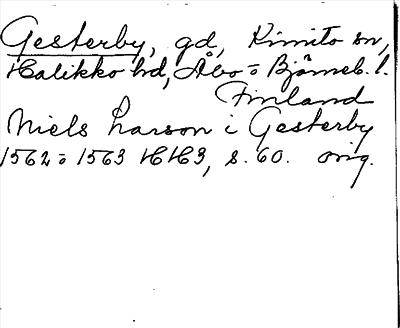 Gesterby, gd, Kimito sn,
Halikko hd, Åbo = Björneb. l.
Finland
Niels Larson i Gesterby
1562 = 1563 HH3, s. 60. orig.